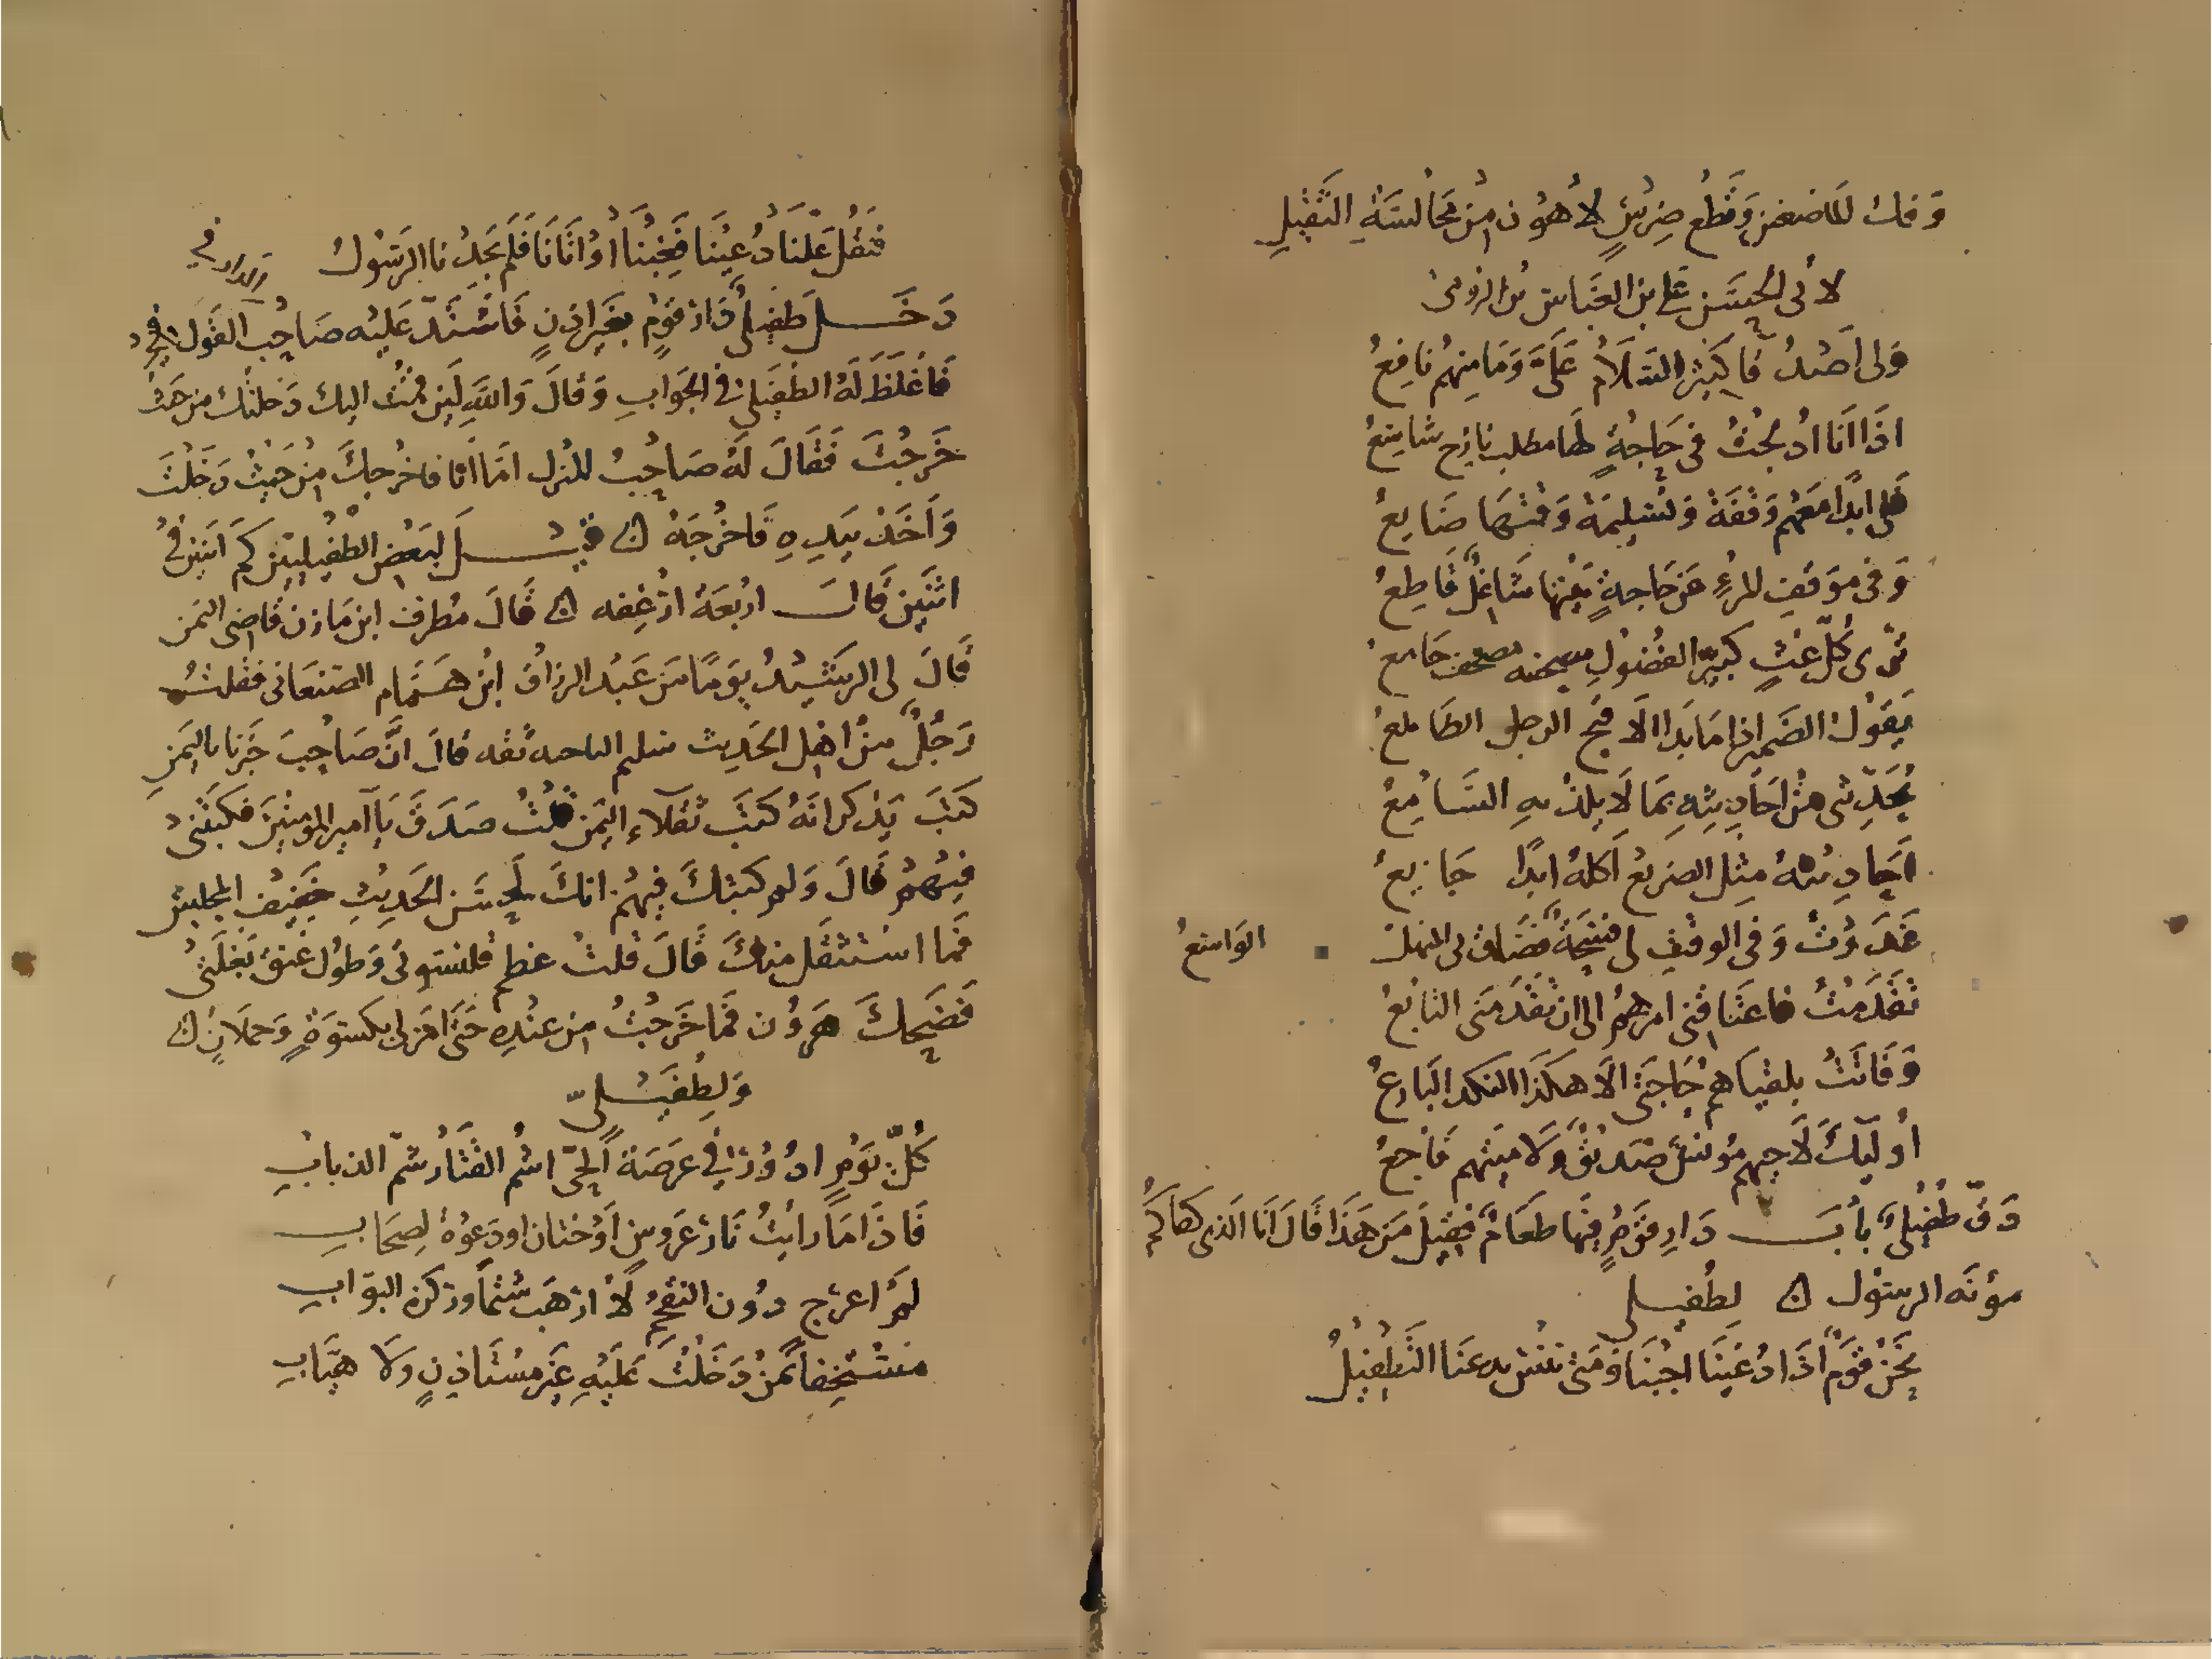 وفك للماضغين وقطع ضرس لأهون من مجالسة الثقيل
لأبي الحسن علي بن العباس بن الرومي
ولي أصدقا كثير السلام علي وما منهم نافع
اذا انا ادلجت في حاجة لها مطلب نازح شاسع
فلي ابدا معهم وقفة وتسليمة وقتها ضايع
وفي موقف المرء عن حاجة يتمها شاغل قاطع
ترى كل غث كبير الفضول مصحفه مصحف جامع
يقول الضمير اذا ما بدا الا قبح الرجل الطالع
يحدثني من احاديثه بما لا يلذ به السامع
احاديثه مثل الضريع اكله ابدا جايع
غدوت وفي الوقت لي فسحة فضاق لي المهل الواسع
تقدمت فاعتاقني امرهم الى ان تقدمني التابع
وفاتت بلقياهم حاجتي الا هكذا النكد البارع
أوليك لا حيهم مونس صديق ولا ميتهم فاجع
دق طفيلي باب دار قوم فيها طعام فقيل من هذا قال انا الذي كفاكم
مؤنة الرسول لطفيلي
نحن قوم اذا دعينا اجبنا ومتى ننس يدعنا التطفيل
فنقل علنا دعينا فغبنا أو اتانا فلم يجدنا الرسول
دخل طفيلي دار قوم بغير اذن فاشتد عليه صاحب الدار في القول
فاغلظ له الطفيلي في الجواب وقال والله لين قمت اليك دخلتك من حيث
خرجت فقال له صاحب المنزل اما انا فاخرجك من حيث دخلت
واخذ بيده فاخرجه قيل لبعض الطفيليين كم اثنين في
اثنين قال اربعة ارغفه قال مطرف ابن مازن قاضي اليمن
قال لي الرشيد يوما من عبد الرزاق ابن همام الصنعاني فقلت
رجل من اهل الحديث سليم الناحيه ثقه قال ان صاحب خبرنا باليمن
كتب يذكر انه كتب ثقلاء اليمن قلت صدق يا آمير المومنين فكتبني
فيهم قال ولم كتبك فيهم انك لحسن الحديث خفيف المجلس
فما استثقل منك قال قلت عظم قلنسوتي وطول عنق بغلتي
فضحك هرون فما خرجت من عنده حتى امر لي بكسوة وحملان
ولطفيلي
كل يوم ادور في عرصة الحي اشم القتار شم الذباب
فاذا ما رأيت نار عروس او ختان او دعوة لصحاب
لم اعرج دون التقحم لا ارهب شتما وزكرة البواب
مستخفا بمن دخلت عليه غير مستاذن ولا هياب